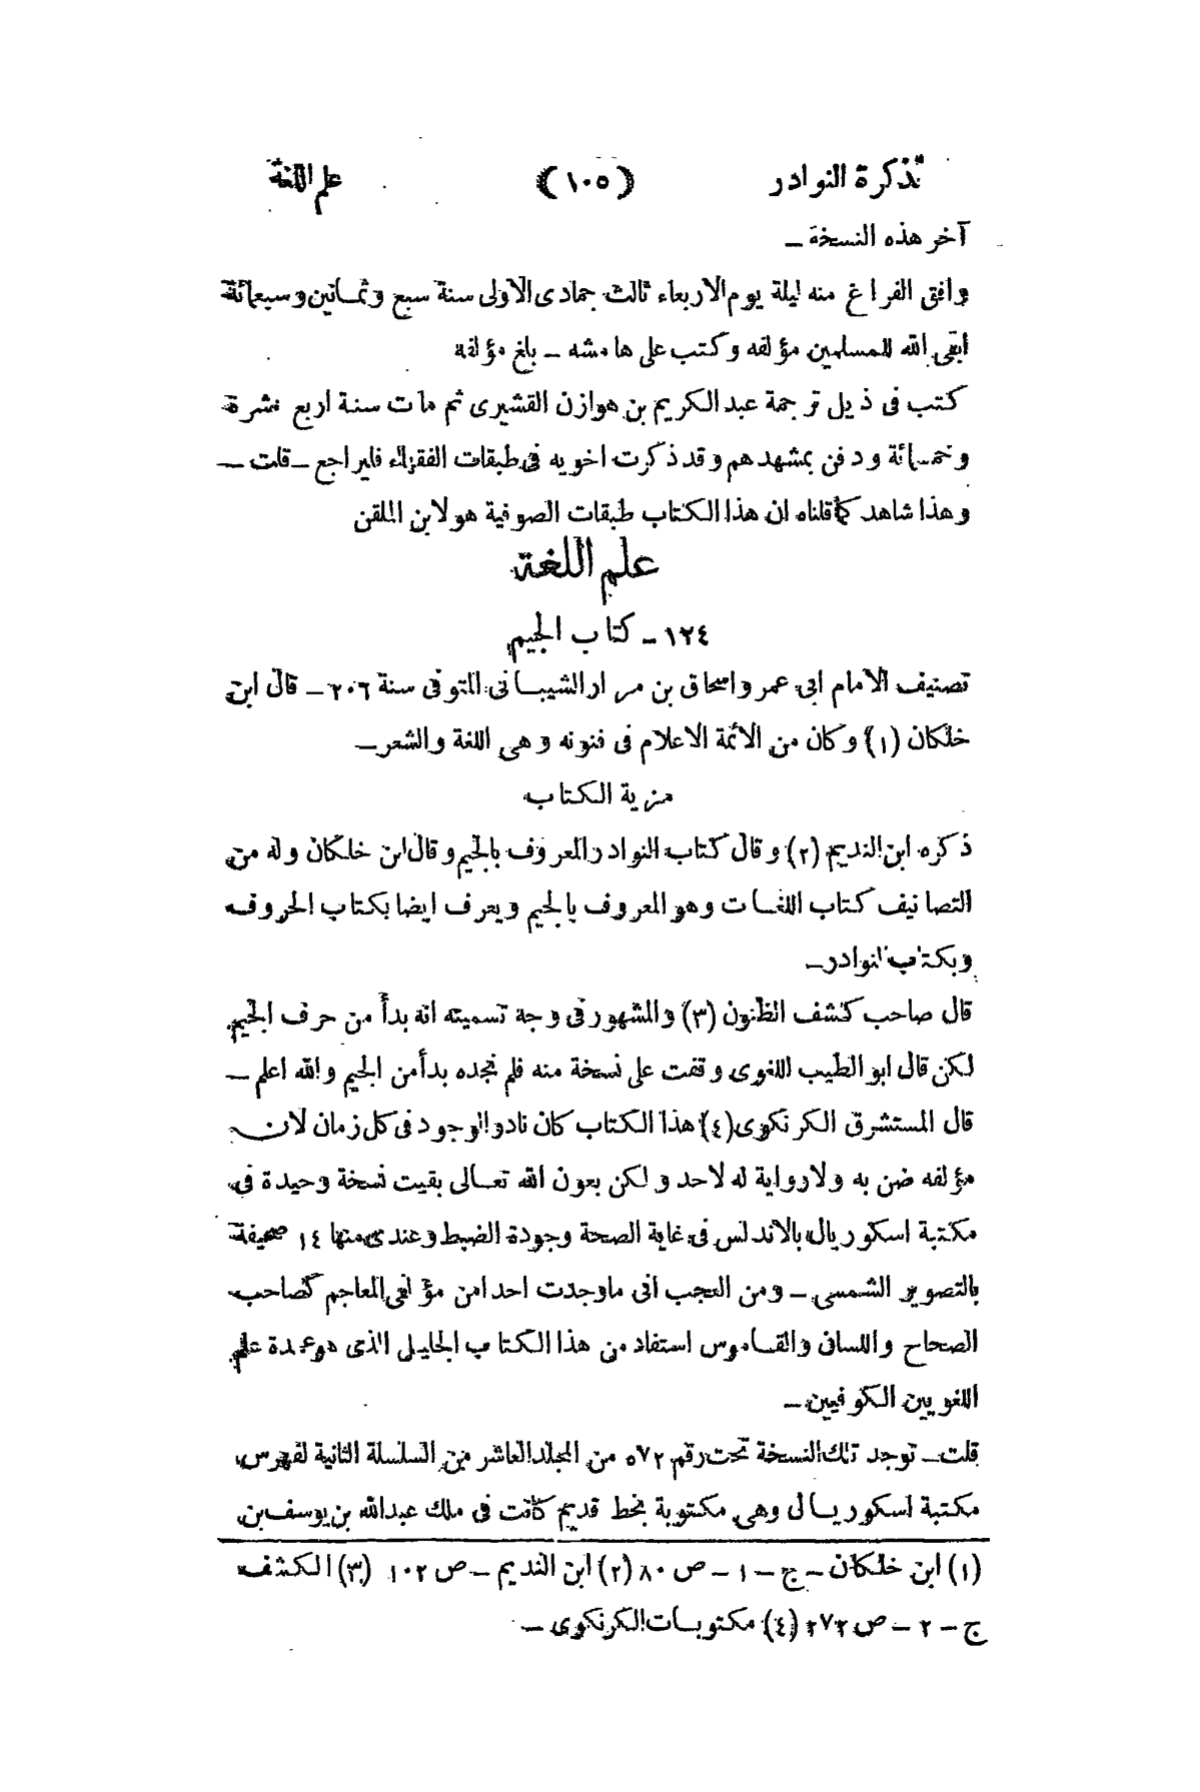 تذكرة النوادر (١٠٥) علم اللغة
آخر هذه النسخة ــ
وافق الفراغ منه ليلة يوم الاربعاء ثالث جمادى الاولى سنة سبع وثمانين وسبعمائة
ابقى الله للمسلمين مؤلفه وكتب على هامشه ــ بلغ مؤلفه
كتب فى ذيل ترجمة عبد الكريم بن هوازن القشيرى ثم مات سنة اربع عشرة
وخمسمائة ودفن بمشهدهم وقد ذكرت اخويه فى طبقات الفقهاء فليراجع ــ قلت ــ
وهذا شاهد كما قلناه ان هذا الكتاب طبقات الصوفية هو لابن الملقن
علم اللغة
١٢٤ ــ كتاب الجيم
تصنيف الامام ابى عمرو اسحاق بن مرار الشيبانى المتوفى سنة ٢٠٦ ــ قال ابن
خلكان (١) وكان من الأئمة الاعلام فى فنونه وهى اللغة والشعر ــ
مزية الكتاب
ذكره ابن النديم (٢) وقال كتاب النوادر المعروف بالجيم وقال ابن خلكان وله من
التصانيف كتاب اللغات وهو المعروف بالجيم ويعرف ايضا بكتاب الحروف
وبكتاب النوادر ــ
قال صاحب كشف الظنون (٣) والمشهور فى وجه تسميته انه بدأ من حرف الجيم
لكن قال ابو الطيب اللغوى وقفت على نسخة منه فلم نجده بدأ من الجيم والله اعلم ــ
قال المستشرق الكرنكوى (٤) هذا الكتاب كان نادر الوجود فى كل زمان لان
مؤلفه ضن به ولا رواية له لاحد ولكن بعون الله تعالى بقيت نسخة وحيدة فى
مكتبة اسكوريال بالاندلس فى غاية الصحة وجودة الضبط وعندى منها ١٤ صحيفة
بالتصوير الشمسى ــ ومن العجب انى ما وجدت احدا من مؤلفى المعاجم كصاحب
الصحاح واللسان والقاموس استفاد من هذا الكتاب الجليل الذى هو عمدة علم
اللغويين الكوفيين ــ
قلت ــ توجد تلك النسخة تحت رقم ٥٧٢ من المجلد العاشر من السلسلة الثانية لفهرس
مكتبة اسكوريال وهى مكتوبة بخط قديم كانت فى ملك عبدالله بن يوسف بن
(١) ابن خلكان ــ ج ــ ١ ــ ص ٨٠ (٢) ابن النديم ــ ص ١٠٢ (٣) الكشف
ج ــ ٢ ــ ص ٢٧٢ (٤) مكتوبات الكرنكوى ــ